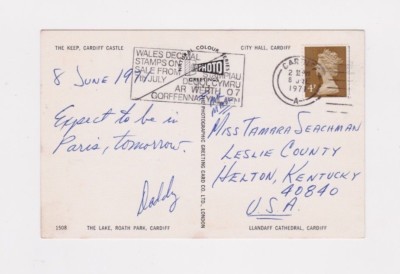 THE KEEP, CARDIFF CASTLE
CITY HALL, CARDIFF
WALES DECIMAL
STAMPS ON
SALE FROM
JULY
AR WERTH O 7
GORFFENNAF
PHOTO
8 June 1971
Expect to be in
Paris, tomorrow.
Daddy
PHOTOGRAPHIC GREETING CARD CO. LTD., LONDON
Miss Tamara Seachman
Leslie County
Helton, Kentucky
40840
U.S.A.
THE LAKE, ROATH PARK, CARDIFF
LLANDAFF CATHEDRAL, CARDIFF